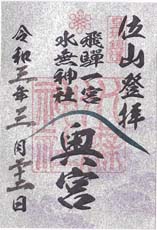 位山登拝
飛騨一宮
水無神社
奥宮
令和三年三月二十二日